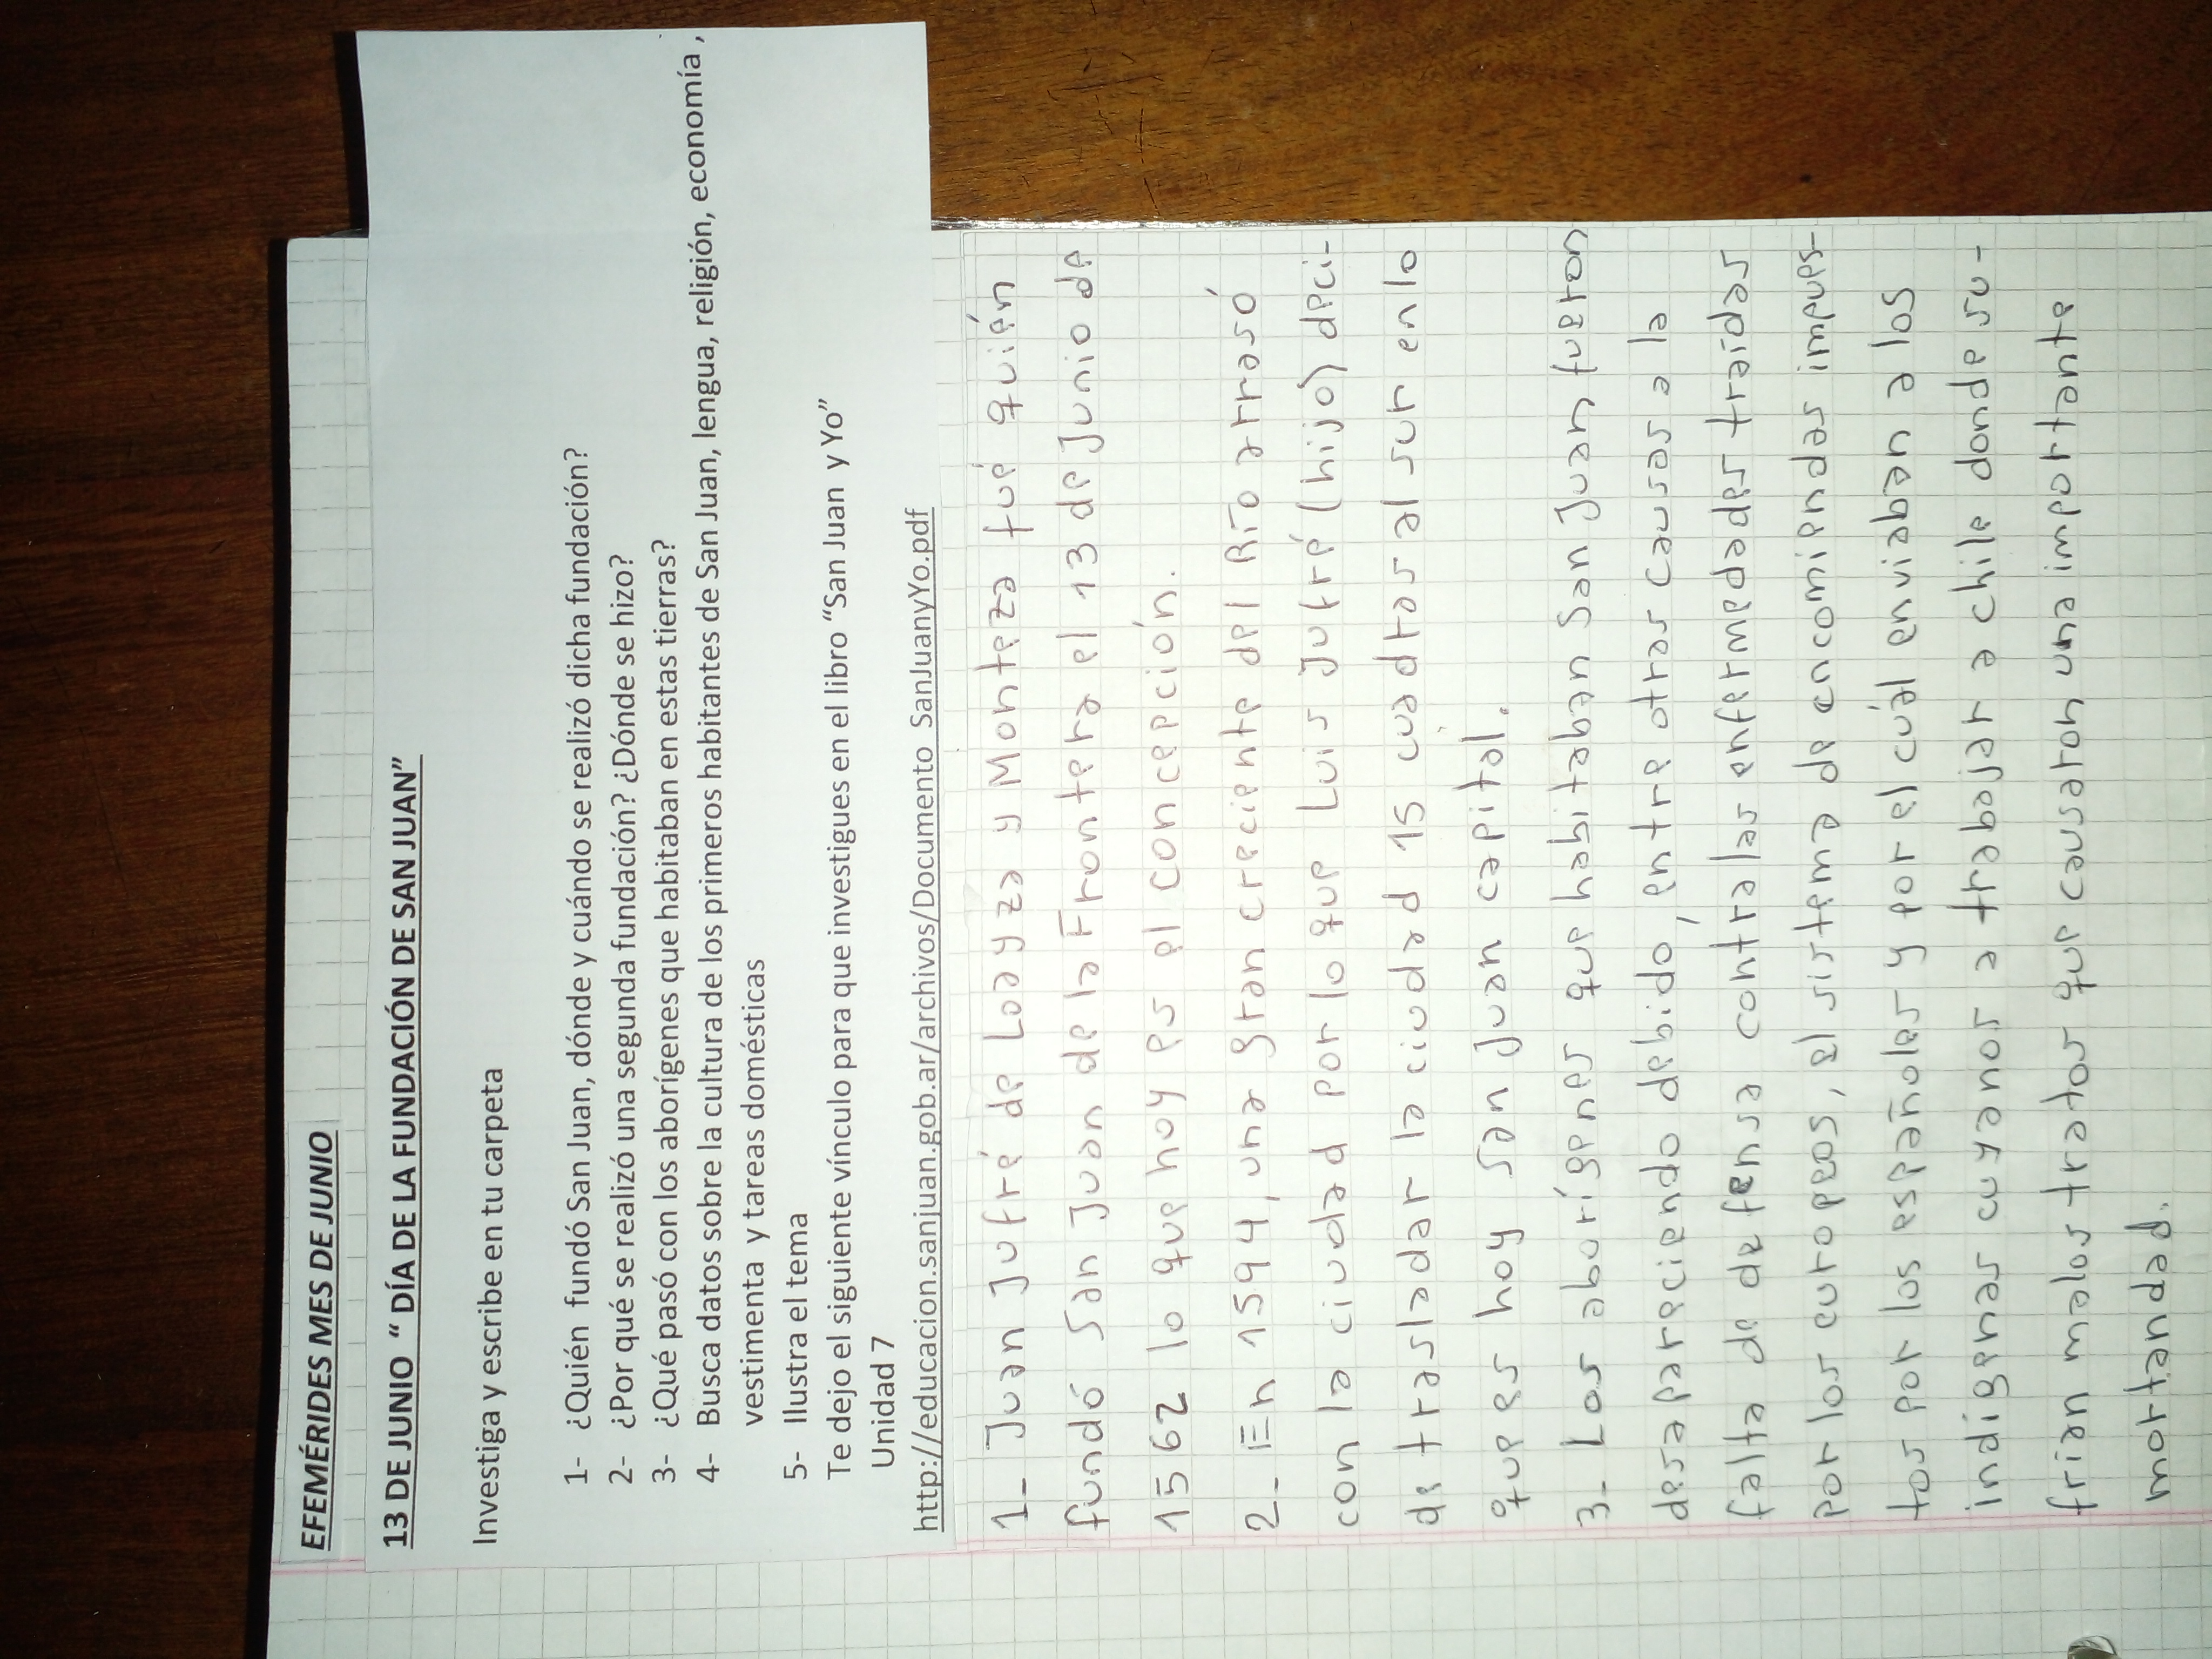 EFEMÉRIDES MES DE JUNIO
13 DE JUNIO “ DÍA DE LA FUNDACIÓN DE SAN JUAN”
Investiga y escribe en tu carpeta
1- ¿Quién fundó San Juan, dónde y cuándo se realizó dicha fundación?
2- ¿Por qué se realizó una segunda fundación? ¿Dónde se hizo?
3- ¿Qué pasó con los aborígenes que habitaban en estas tierras?
4- Busca datos sobre la cultura de los primeros habitantes de San Juan, lengua, religión, economía ,
vestimenta y tareas domésticas
5- Ilustra el tema
Te dejo el siguiente vínculo para que investigues en el libro “San Juan y Yo”
Unidad 7
http://educacion.sanjuan.gob.ar/archivos/Documento_SanJuanyYo.pdf
1_ Juan Jufré de Loayza y Monteza fué quién
fundó San Juan de la Frontera el 13 de Junio de
1562 lo que hoy es el concepción.
2_ En 1594, una gran creciente del Río arrasó
con la ciudad por lo que Luis Jufré (hijo) deci-
de trasladar la ciudad 15 cuadras al sur en lo
que es hoy San Juan capital.
3_ Los aborígenes que habitaban San Juan fueron
desapareciendo debido, entre otras causas a la
falta de defensa contra las enfermedades traídas
por los europeos, el sistema de encomiendas impues-
tos por los españoles y por el cuál enviaban a los
indígenas cuyanos a trabajar a chile donde su-
frian malos tratos que causaron una importante
mortandad.